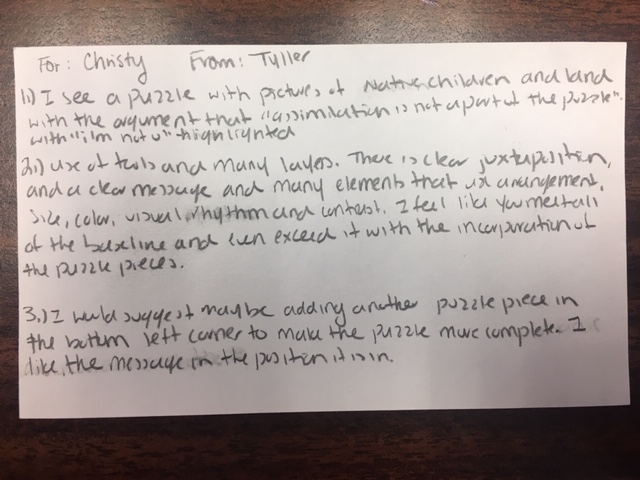 For: Christy From: Tyller
1.) I see a puzzle with pictures of Native children and land
with the argument that "assimilation is not a part of the puzzle".
with "I'm not u" highlighted
2.) Use of tools and many layers. There is clear juxtaposition,
and a clear message and many elements that use arrangement,
size, color, visual rhythm and contrast. I feel like you met all
of the baseline and even exceed it with the incorporation of
the puzzle pieces.
3.) I would suggest maybe adding another puzzle piece in
the bottom left corner to make the puzzle more complete. I
like the message in the position it is in.